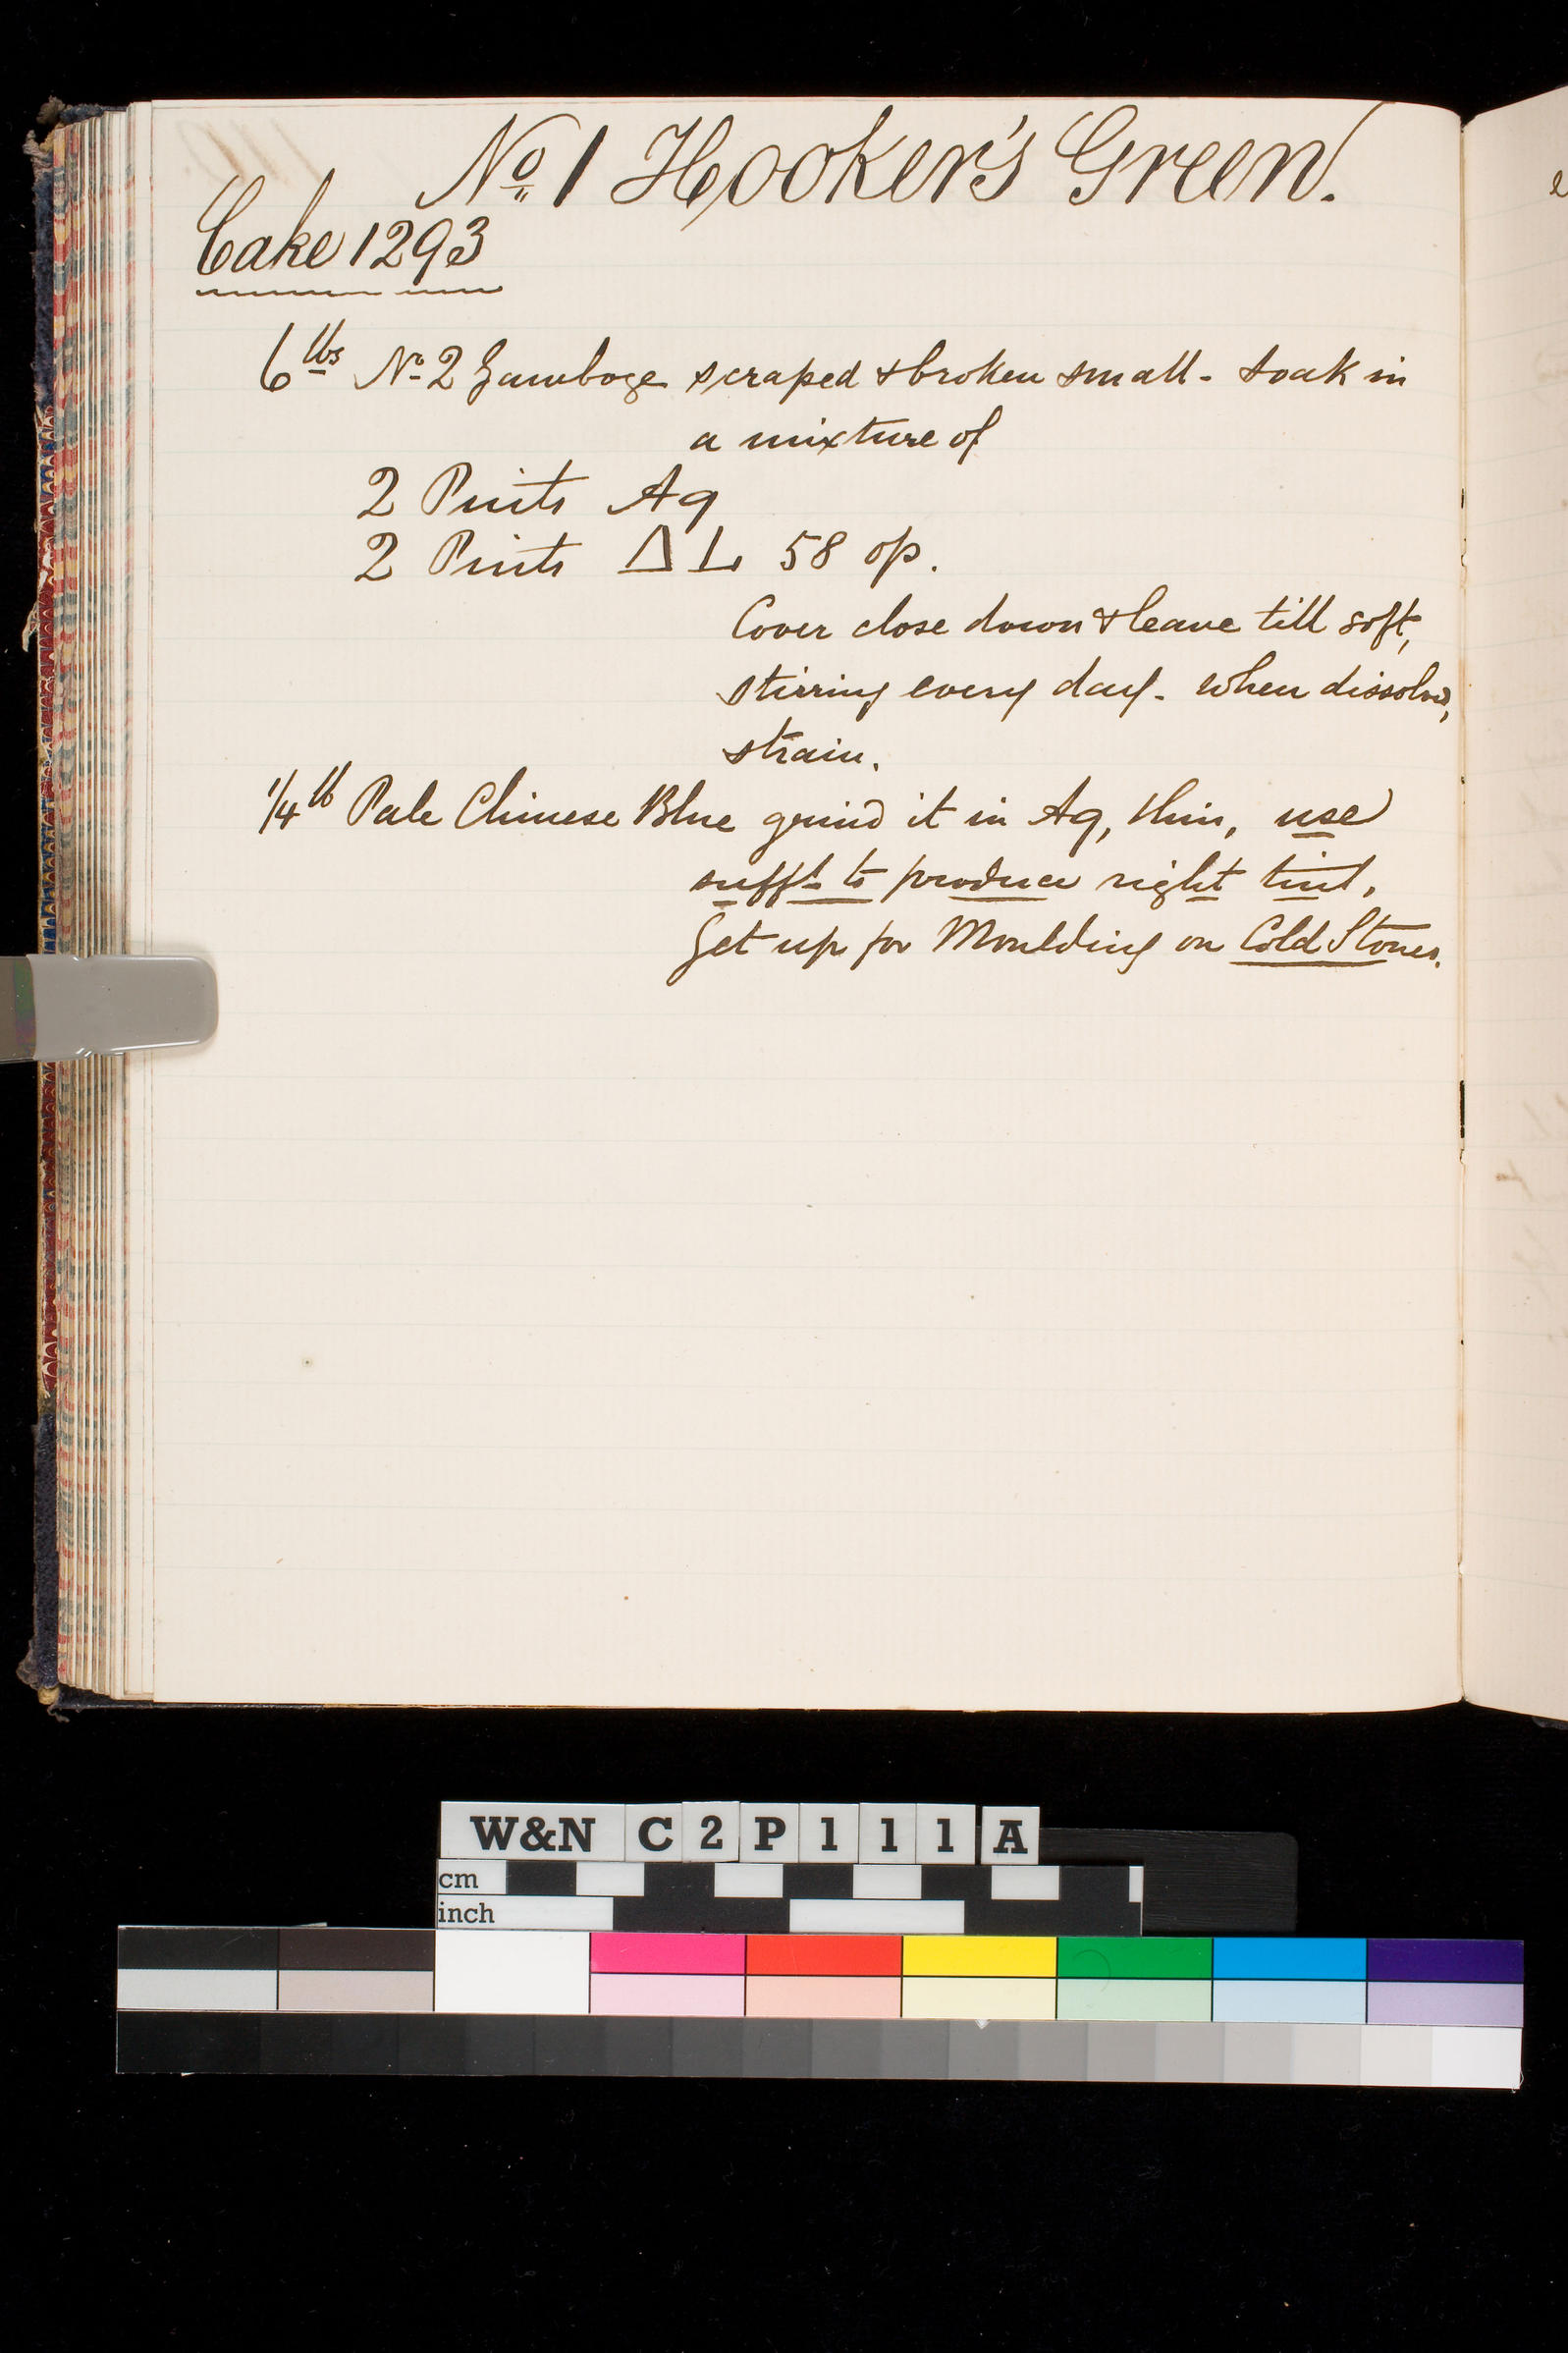 No. 1 Hooker's Green.
Cake 1293
6 lbs No. 2 Gamboge scraped & broken small - Soak in
a mixture of
2 Pints Aq
2 Pints Δ L 58 op.
Cover close down & leave till soft,
stirring every day. when dissolved,
strain.
1/4 lb Pale Chinese Blue grind it in Aq, thin, use
sufft to produce right tint.
Get up for Moulding on Cold Stones.
W&N C2P111A
cm
inch